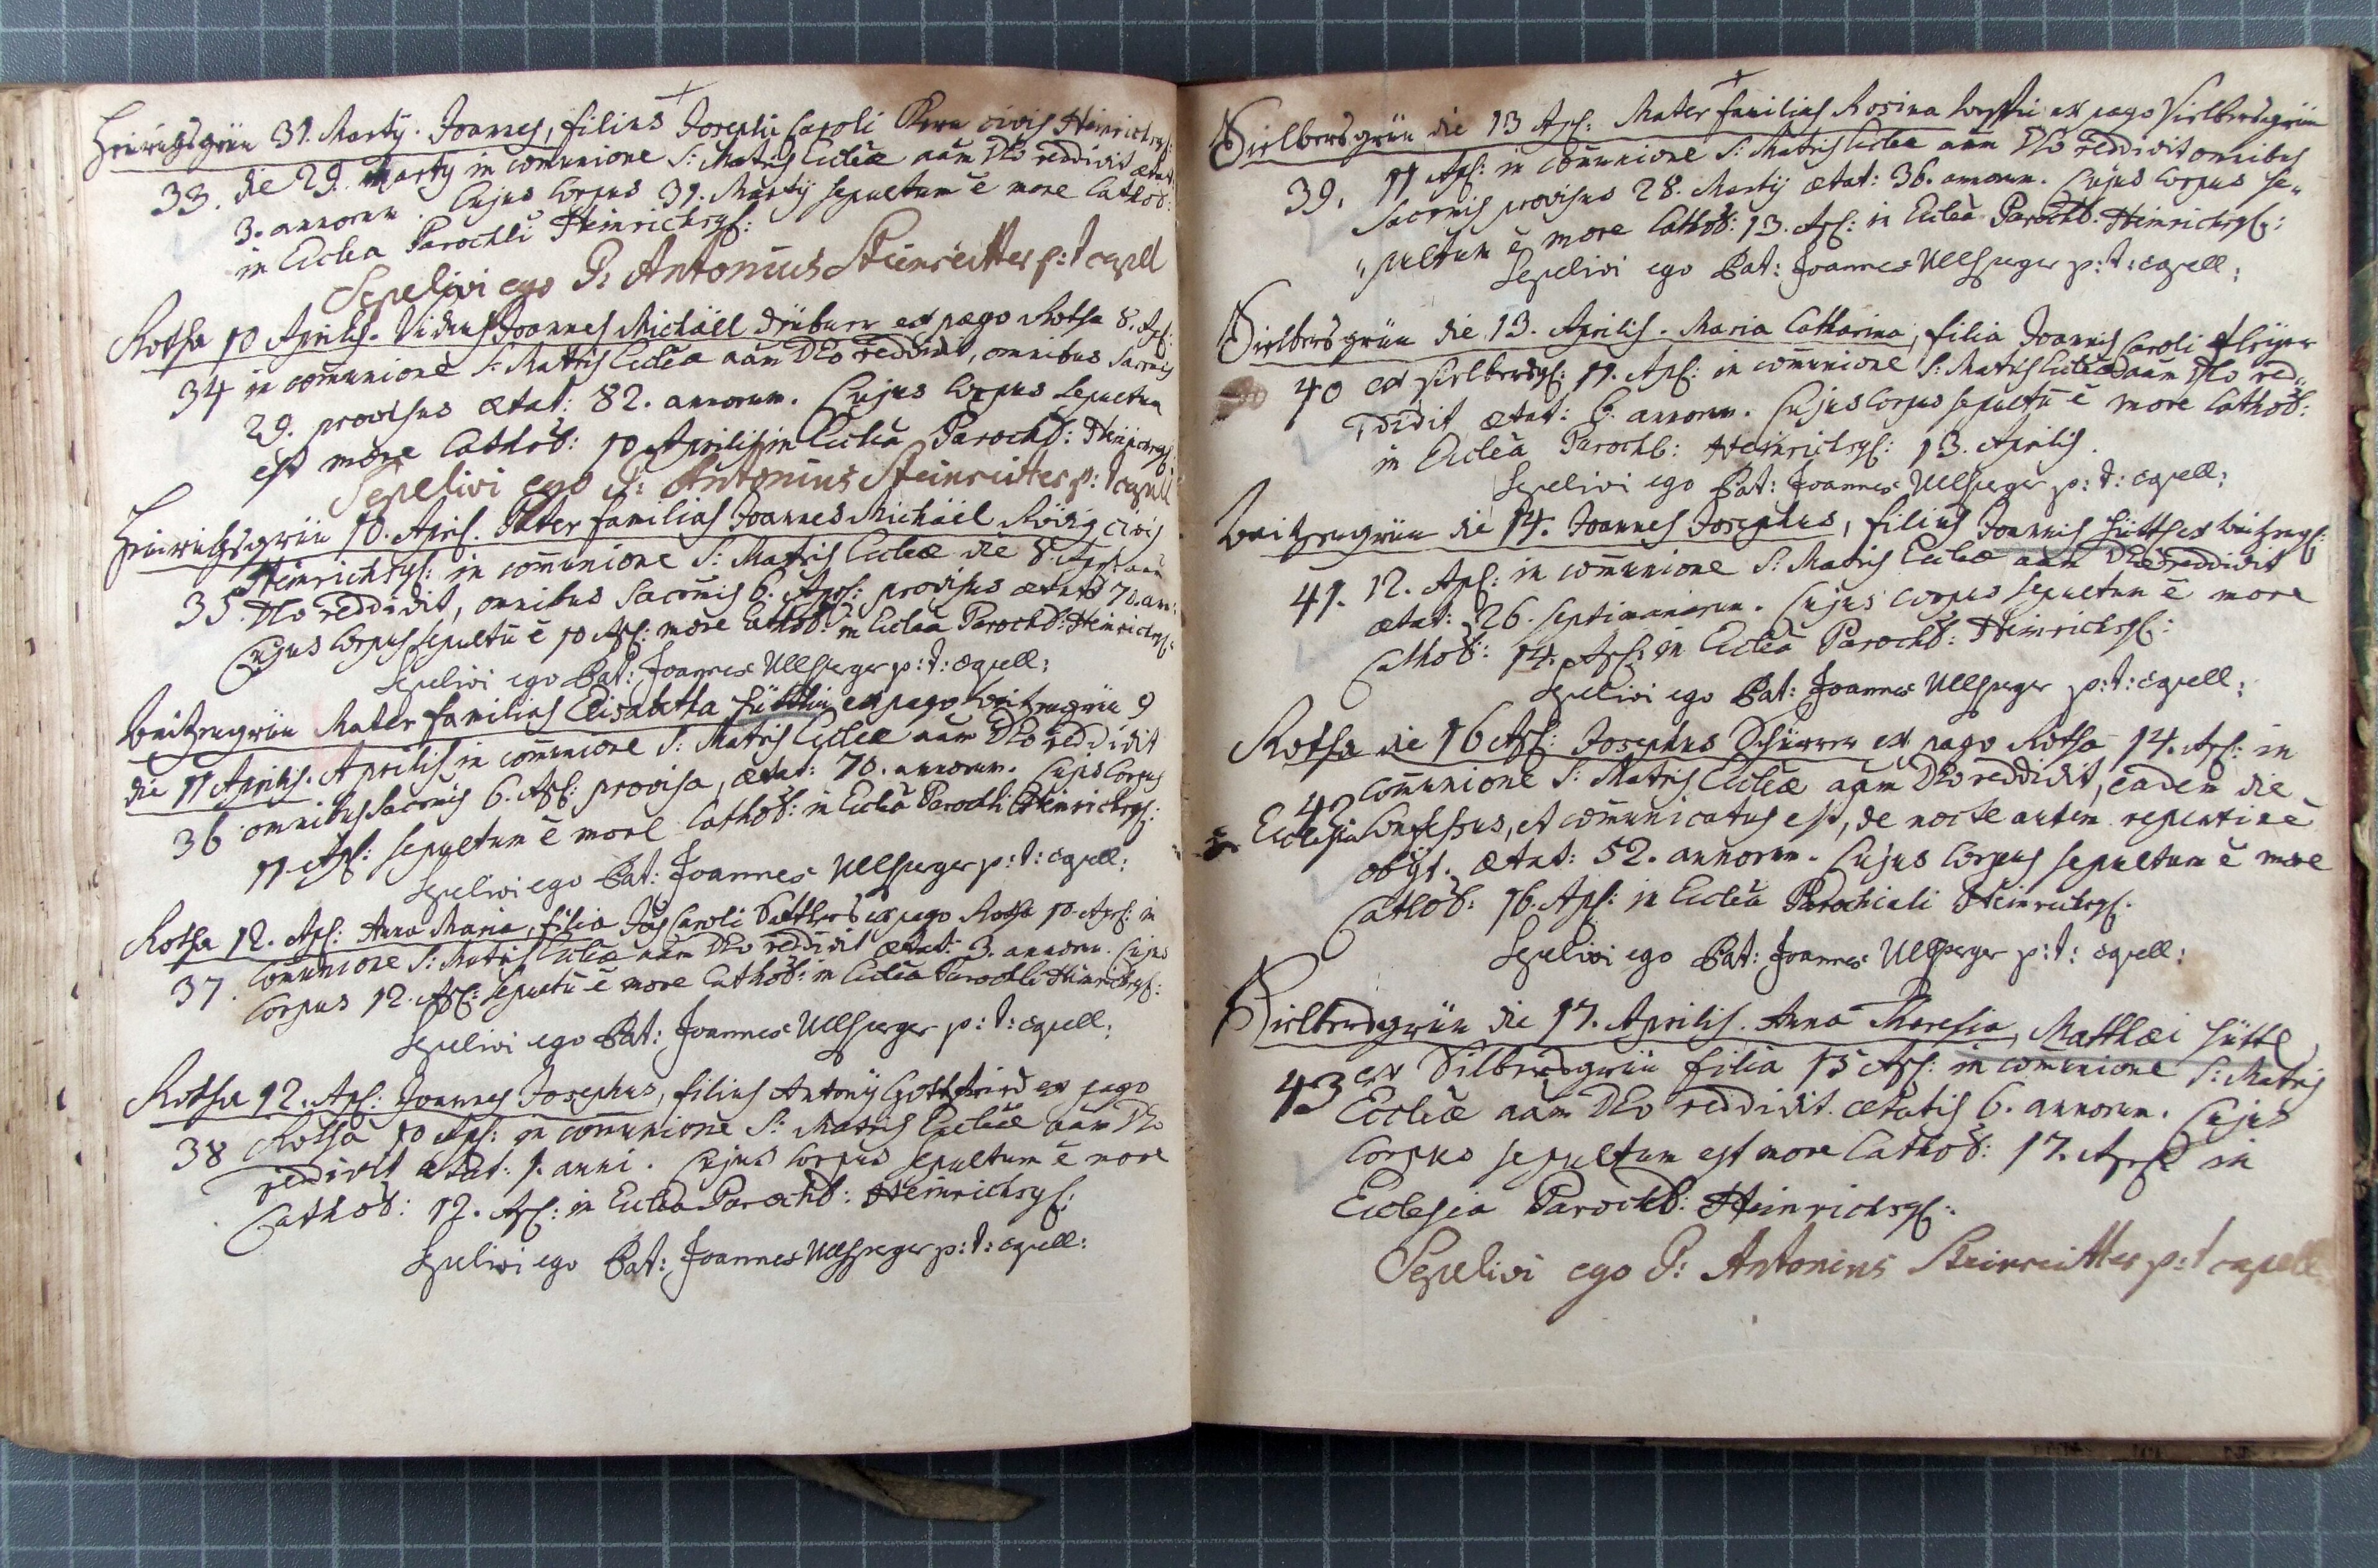 Heinrichsgrün 31. Martÿ. Joannes, filius Josephi Caroli Kern civis Heinrichsg:
33. die 29. Martÿ in comunione S: Matris Eccleae aām DEo reddidit aetat:
3. annorum. Cujus Corpus 31. Martÿ sepultum ē more Cathol:
in Ecclea Parochli Heinrichsg:
Sepelivi ego P: Antonius Steinreitter p: t capell
Rotha 10 Aprilis. Viduus Joannes Michäel ex pago Rotha 8. Apl:
34 in comunione S: Matris Ecclea aām DEo reddidit, omnibus Sacrmis
29. provisus aetat: 82. annorum. Cujus Corpus sepultum
est more Cathol: 10 Aprilis in Ecclea Parochl: Heinrichsg:
Sepelivi ego P: Antonius Steinreitter p: t capell
Heinrichsgrün 10. Apl. Pater familias Joannes Michäel Rödig civis
Heinrichsg: in comunione S: Matris Eccleae die 8. Apl: aām
35. DEo reddidit, omnibus Sacrmis 6. Apl: provisus aetat: 70. ann:
Cujus Corpus sepultū ē 10 Apl: more Cathol: in Ecclea Parochl: Heinrichsg:
Sepelivi ego Pat: Joannes Ullsperger p: t: capell:
Waitzengrün Mater familias Elisabetha Hüttlin ex pago Waitzengrün 9
die 11 Aprilis. Aprilis in comunione S: Matris Eccleae aām DEo reddidit
36 omnibus Sacrmis 6. Apl: provisa, aetat: 70. annorum. Cujus Corpus
11 Apl: sepultum ē more Cathol: in Ecclea Parochli Heinrichsg:
Sepelivi ego Pat: Joannes Ullsperger p: t: capell:
Rotha 12. Apl: Anna Maria, filia Joīs Caroli ex pago Rotha 10. Apl: in
37. Comunione S: Matris Eccleae aām DEo reddidit aetat: 3. annorum. Cujus
Corpus 12. Apl: sepultū ē more Cathol: in Ecclea Parochli Heinrichsg:
Sepelivi ego Pat: Joannes Ullsperger p: t: capell:
Rotha 12. Apl: Joannes Josephus, filius Antonÿ Gottfried ex pago
38 Rotha 10 Apl: in comunione S: Matris Eccleae aām DEo
reddidit aetat: 1. anni. Cujus Corpus sepultum ē more
Cathol: 12. Apl: in Ecclea Parochl: Heinrichsg:
Sepelivi ego Pat: Joannes Ullsperger p: t: capell:
Silbersgrün die 13 Apl: Mater familias Rosina ex pago Silbersgrün
39. 11 Apl: in comunione S: Matris Ecclea aām DEo reddidit omnibus
Sacrmis provisus 28. Martÿ aetat: 36. annorum. Cujus Corpus se„
„pultum ē more Cathol: 13. Apl: in Ecclea Parochl: Heinrichsg:
Sepelivi ego Pat: Joannes Ullsperger p: t: capell:
Silbersgrün die 13. Aprilis. Maria Catharina, filia Joannis Caroli
40 ex Silbersg: 11. Apl: in comunione S: Matris Eccleae aām DEo red„
„didit aetat: 6. annorum. Cujus Corpus sepultū ē more Cathol:
in Ecclea Parochl: Heinrichsg: 13. Aprilis.
Sepelivi ego Pat: Joannes Ullsperger p: t: capell:
Waitzengrün die 14. Joannes Josephus, filius Joannis Hüttl ex Waitzengr:
41. 12. Apl: in comunione S: Matris Eccleae aām DEo reddidit
aetat: 26. septimanarum. Cujus Corpus sepultum ē more
Cathol: 14. Apl: in Ecclea Parochl: Heinrichsg:
Sepelivi ego Pat: Joannes Ullsperger p: t: capell:
Rotha die 16 Apl: Josephus Schürrer ex pago Rotha 14. Apl: in
42 comunione S: Matris Eccleae aām DEo reddidit, eadem die
Ecclesia confessus, et comunicatus est, de nocte autem repentine
obÿt. aetat: 52. annorum. Cujus Corpus sepultum ē more
Cathol: 16. Apl: in Ecclea Parochiali Heinrichsg:
Sepelivi ego Pat: Joannes Ullsperger p: t: capell:
Silbersgrün die 17. Aprilis. Anna Theresia, Matthaei Hüttl
43 ex Silbersgrün filia 15 Apl: in comunione S: Matris
Eccleae aām DEo reddidit aetatis 6. annorum. Cujus
Corpus sepultum est more Cathol: 17. Apl in
Ecclesia Parochl: Heinrichsg:
Sepelivi ego P: Antonius Steinreitter p: t capell